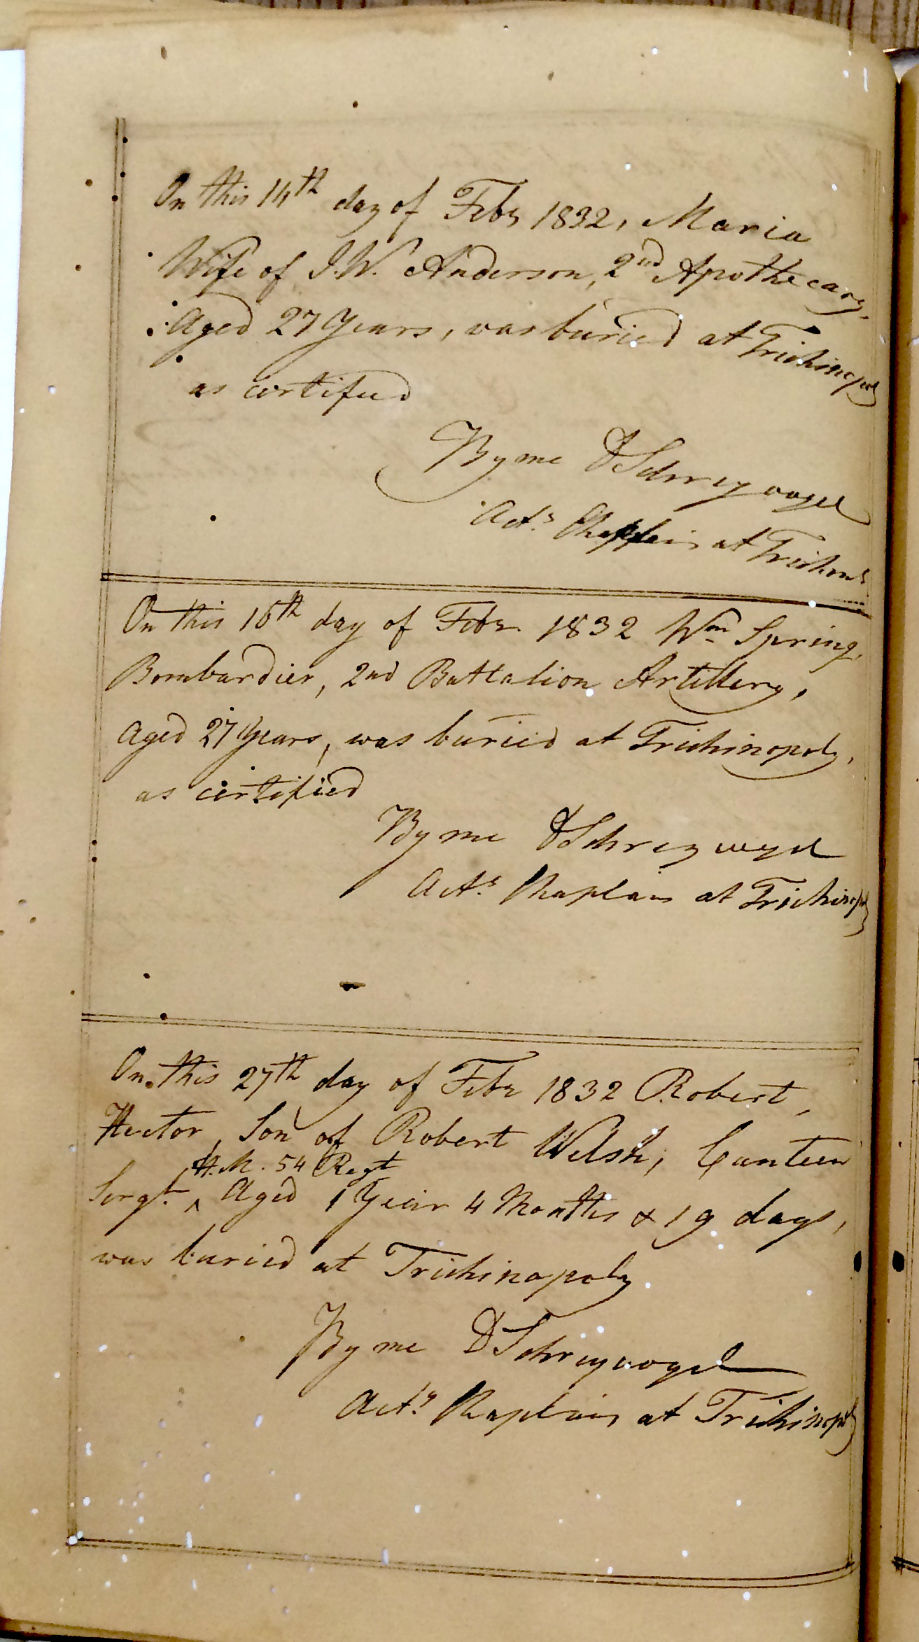 On this 14th day of Feby 1832, Maria
Wife of J. W. Anderson, 2nd Apothecary,
Aged 27 Years, was buried at Trichinopoly
as certified
By me D Schreyvogel
Actg. Chaplain at Trichinoly
On this 16th day of Feby 1832 Wm Spring,
Bombardier, 2nd Battalion Artillery,
Aged 27 Years, was buried at Trichinopoly,
as certified
By me D Schreyvogel
Actg. Chaplain at Trichinopoly
On this 27th day of Feby 1832 Robert,
Hector, Son of Robert Welsh, Canteen
H. M. 54 Regt
Sergt. ^ Aged 1 Year 4 Months & 19 days,
was buried at Trichinopoly
By me D Schreyvogel
Actg. Chaplain at Trichinopoly